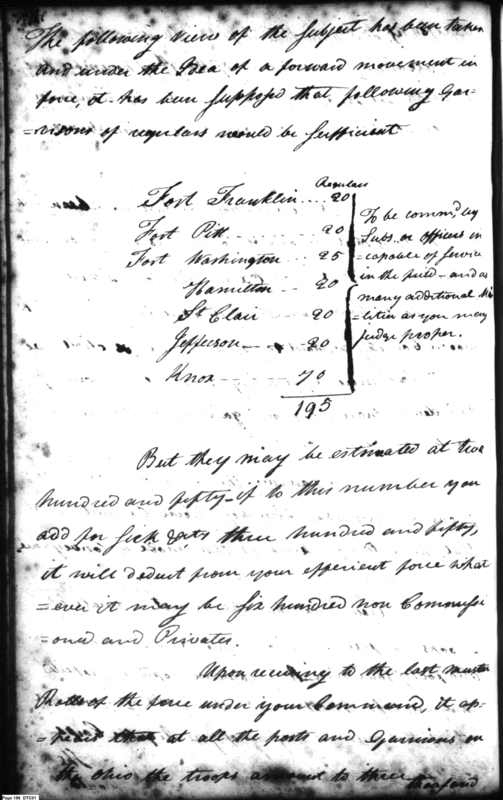 The following view of the subject has been taken
and under the Idea of a forward movement in
force, it has been supposed that following Gar-
=risons of regulars would be sufficient
Regulars
Fort Franklin .... 20
Fort Pitt ........ 20
Fort Washington .. 25
Hamilton .. 20
St Clair .... 20
Jefferson .... 20
Knox ...... 70
195
To be comm,d by
Subs. or officers in
=capable of service
in the field - and as
many additional Mi
=litia as you may
judge proper.
But they may be estimated at two
hundred and fifty - if to this number you
add for sick &ca three hundred and fifty,
it will deduct from your efficient force what
=ever it may be six hundred non Commissi
=oned and Privates.
Upon recurring to the last muster
Rolls of the force under your Command, it ap-
=pears that at all the posts and Garrisons on
the Ohio the troops amount to three
thousand
Page 196 DTC01